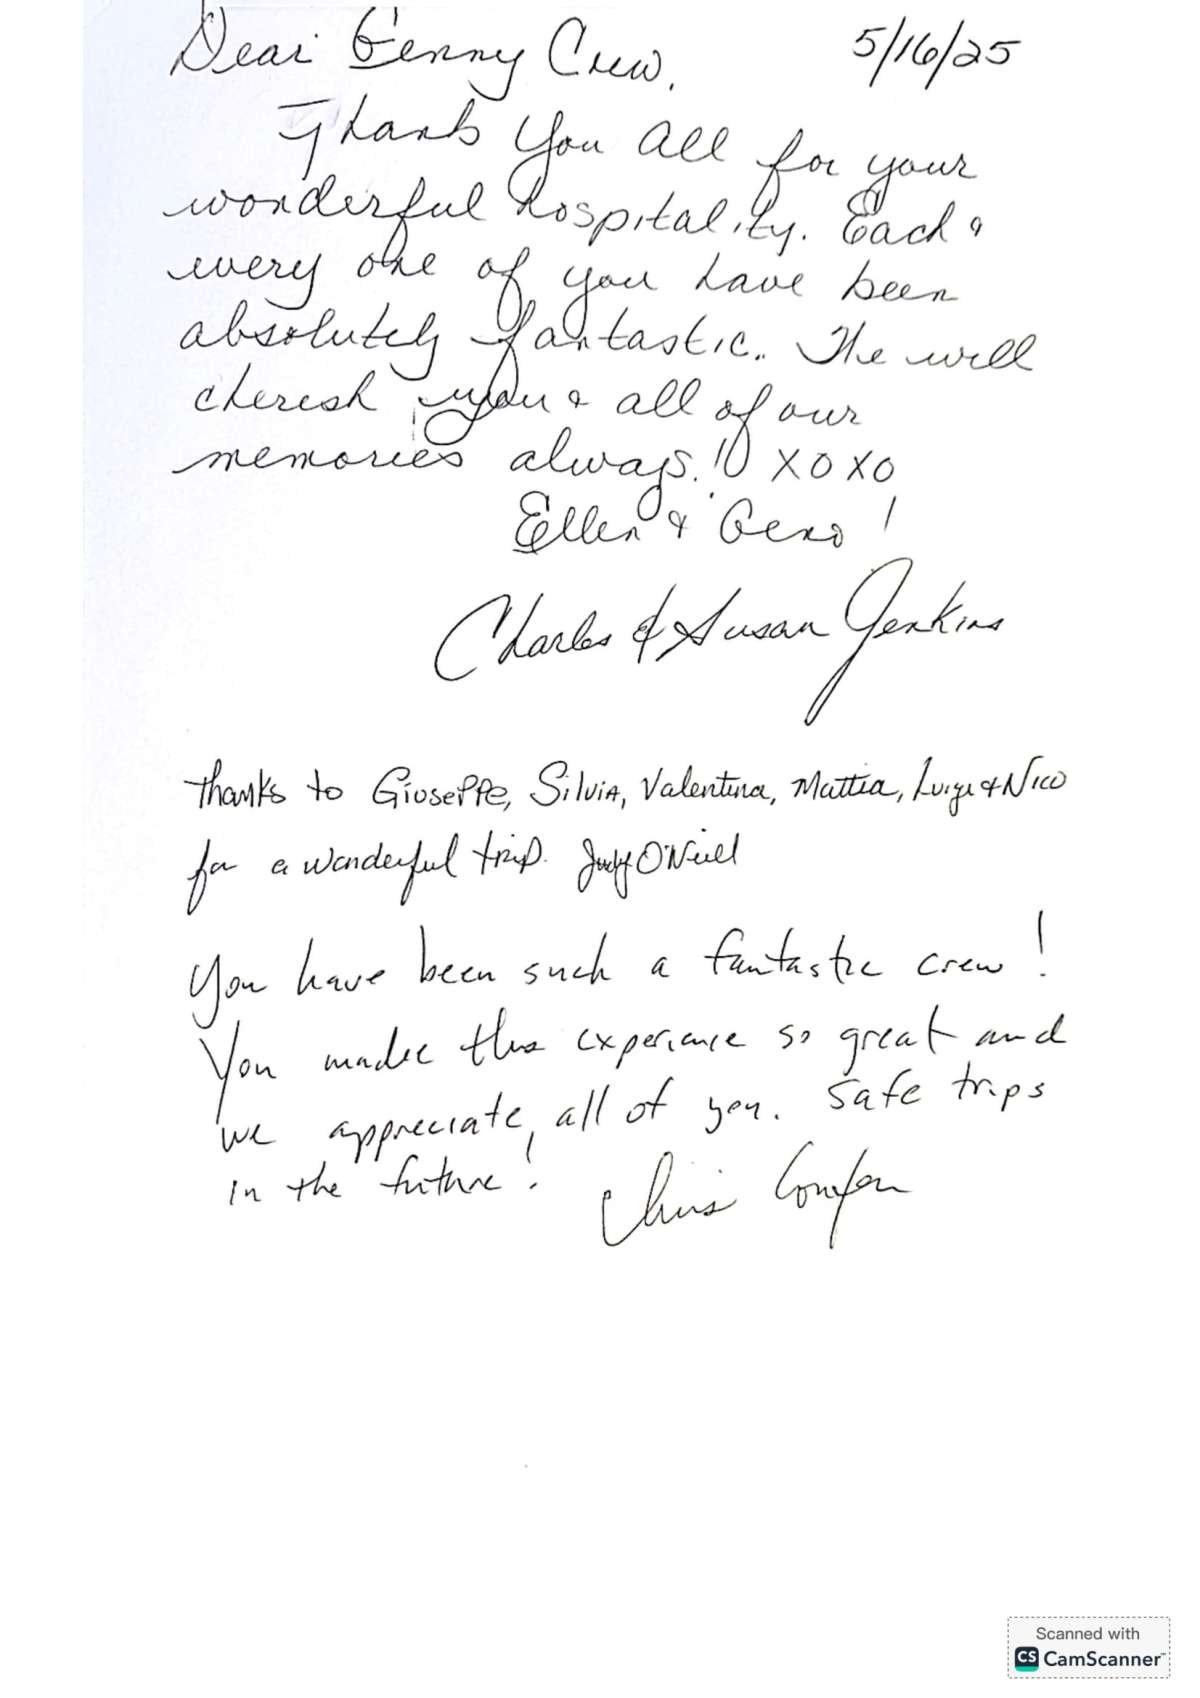 Dear Genny Crew, 5/16/25
Thank You all for your
wonderful hospitality. Each &
every one of you have been
absolutely fantastic. The will
cherish you & all of our
memories always!! XOXO
Ellen & Geno!
Charles & Susan Jenkins
Thanks to Giuseppe, Silvia, Valentina, Mattia, Luigi & Nico
for a wonderful trip. Judy O'Neill
You have been such a fantastic crew!
You made this experience so great and
we appreciate all of you. Safe trips
in the future! Chris
Scanned with
CS CamScanner